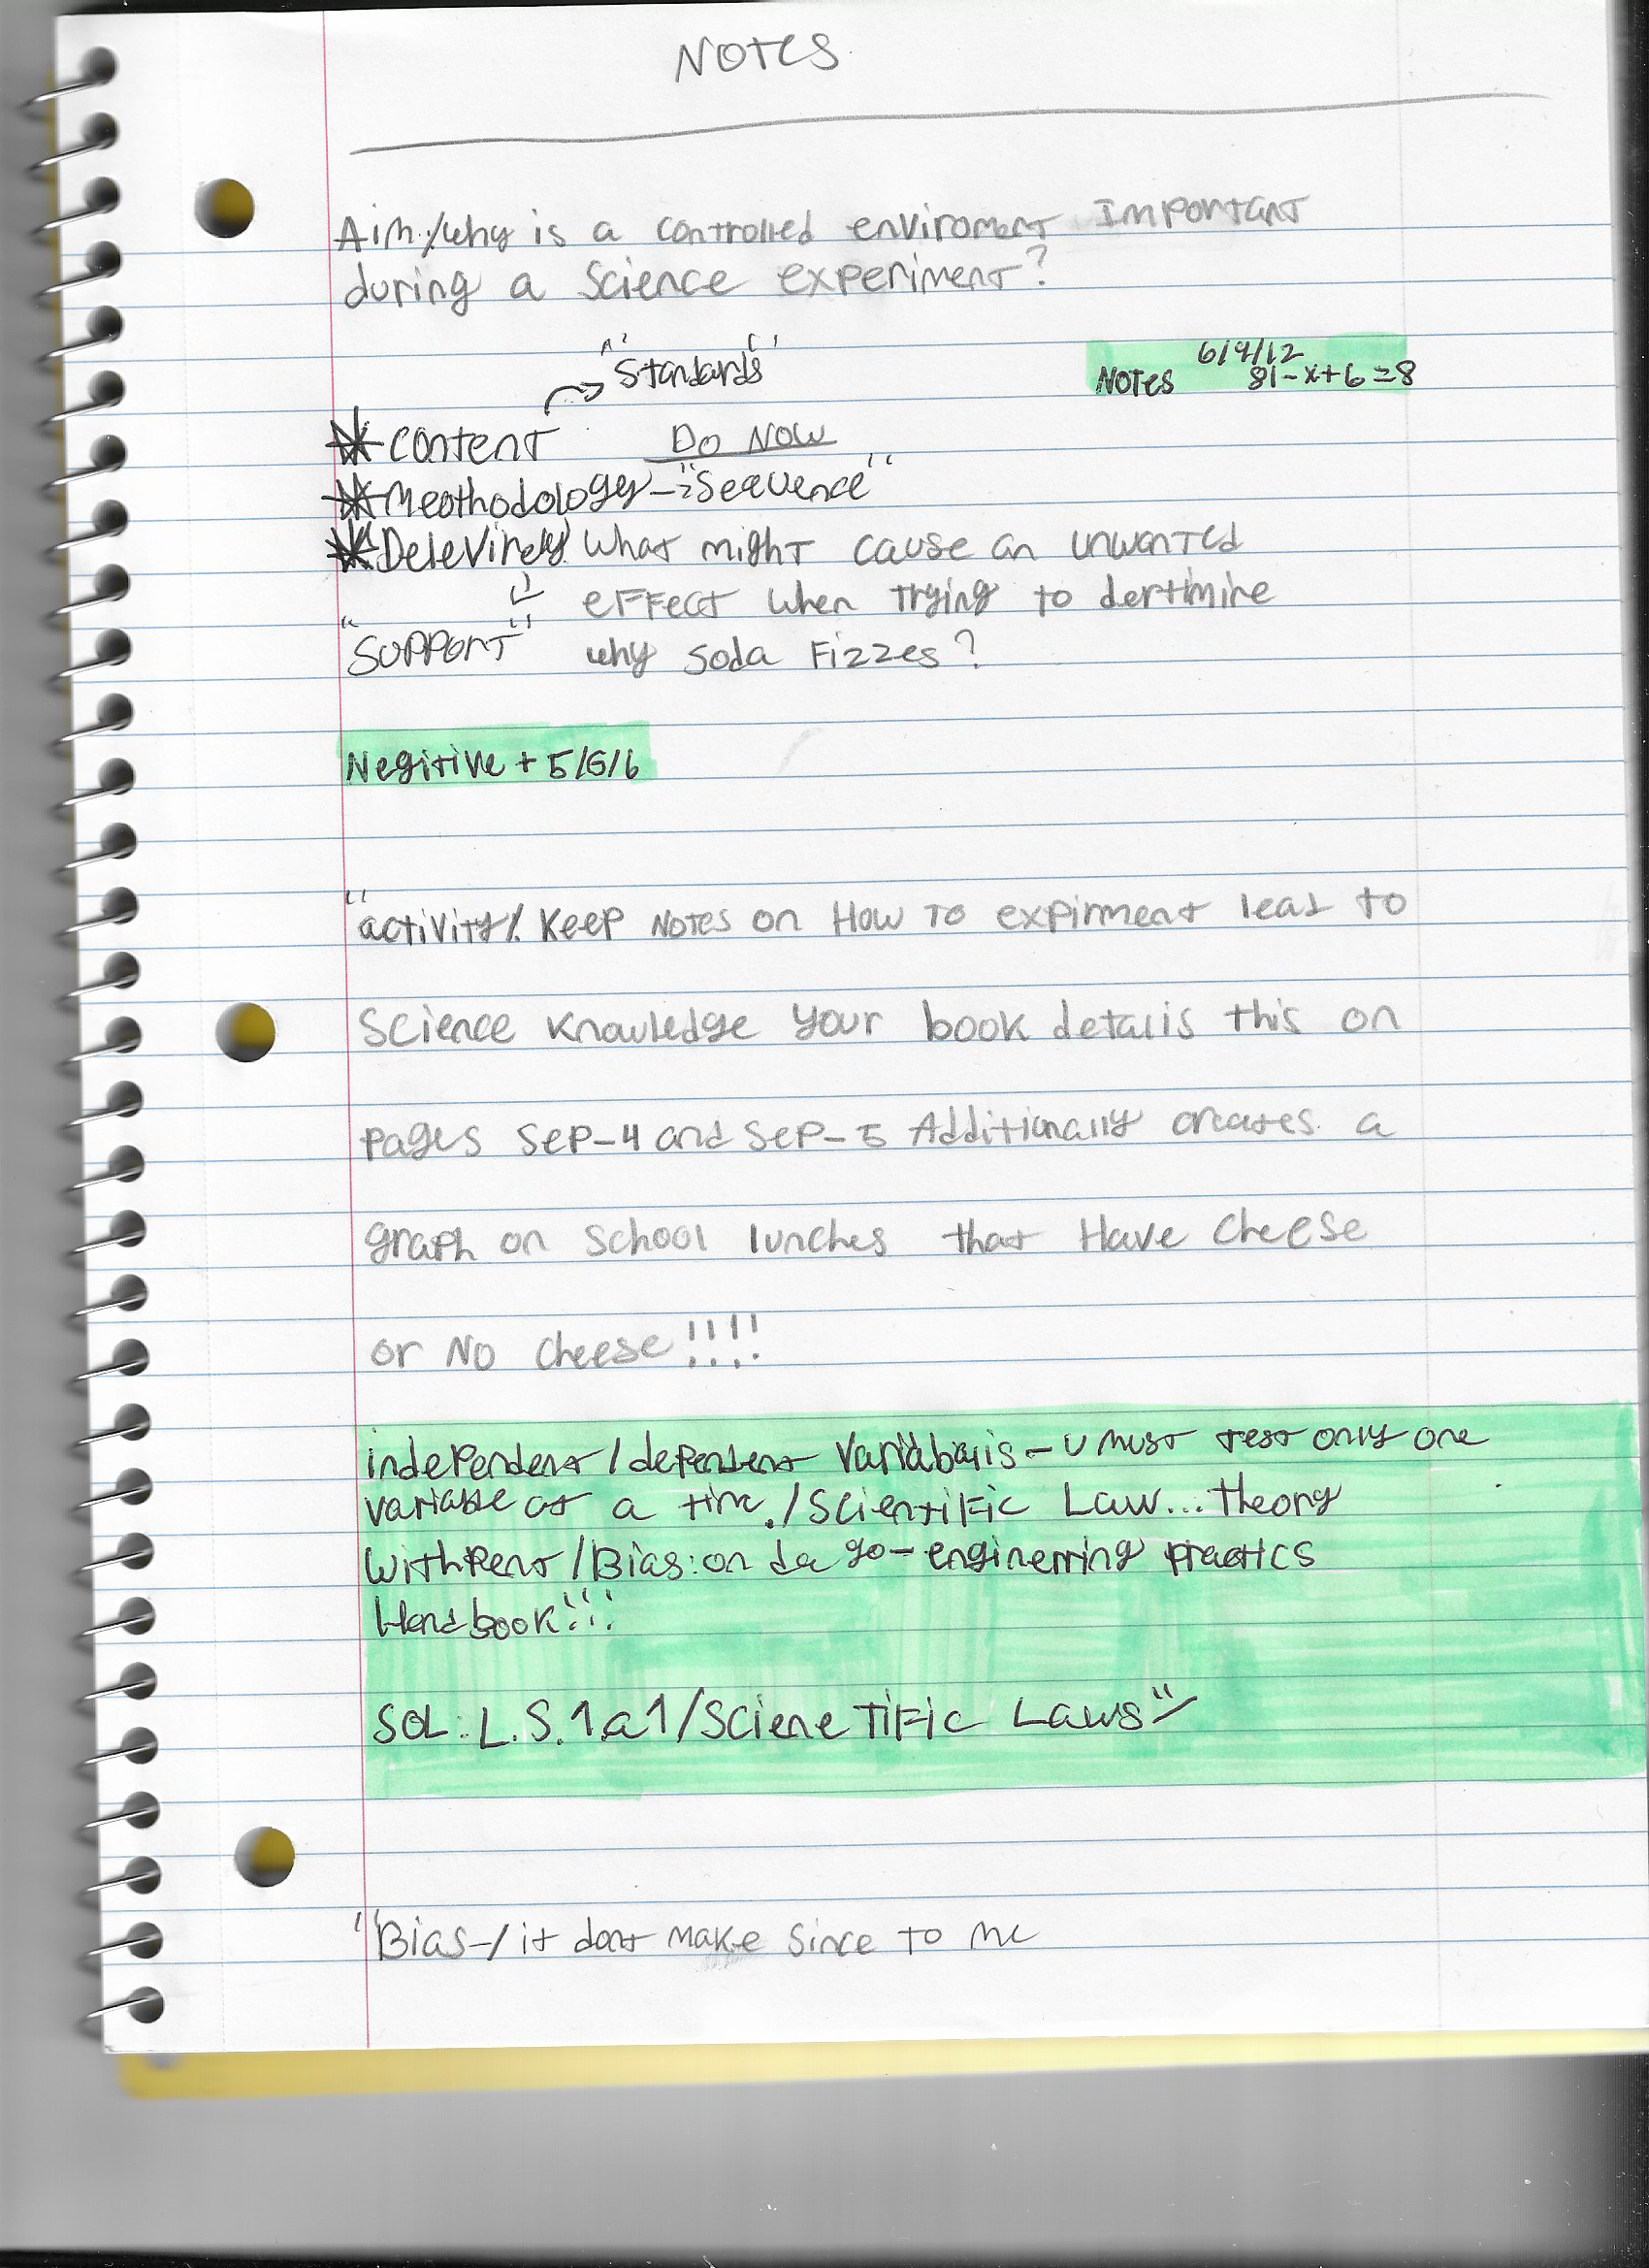 NOTES
Aim:/why is a controlled enviroment Important
during a science experiment?
"Standards"
6/9/12
Notes 81-x+6=8
* Content Do Now
* Meothodology - "Sequence"
* Delevirely What might cause an unwanted
effect when trying to dertimire
"Support" why soda Fizzes?
Negitive + 5/6/6
"activity/. Keep Notes on How To expirment lead to
Science Knowledge your book detalis this on
pages SEP-4 and SEP-5 Additionally creates a
graph on School lunches that Have Cheese
or No Cheese!!!!
independent/dependent - u must test only one
variable at a time./Scientific Law...theory
/Bias: on da go- practics
Handbook!!!
SOL: L.S.1.a1/Scienetific Laws"
"Bias-/ it dont make since to me